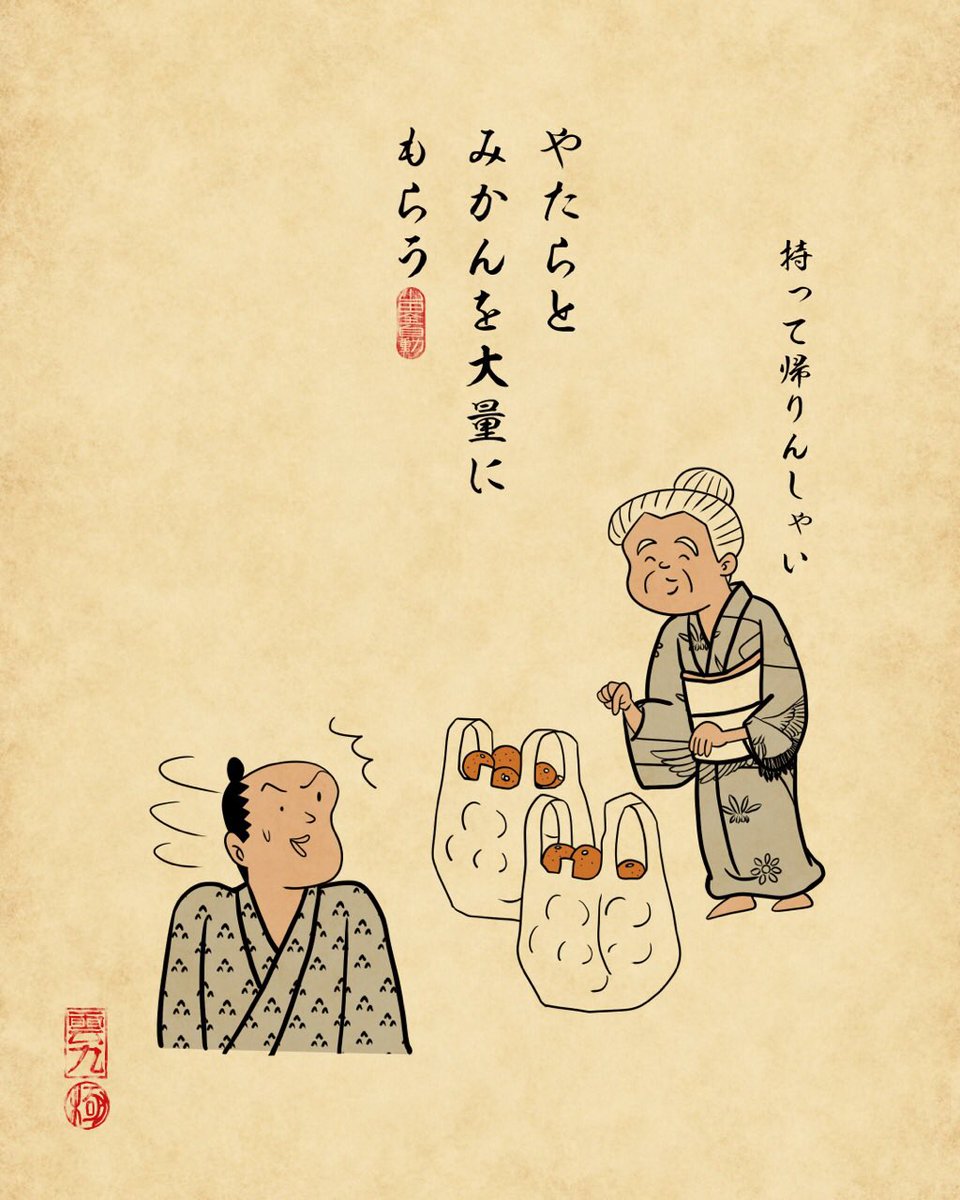 持って帰りんしゃい
やたらと
みかんを大量に
もらう